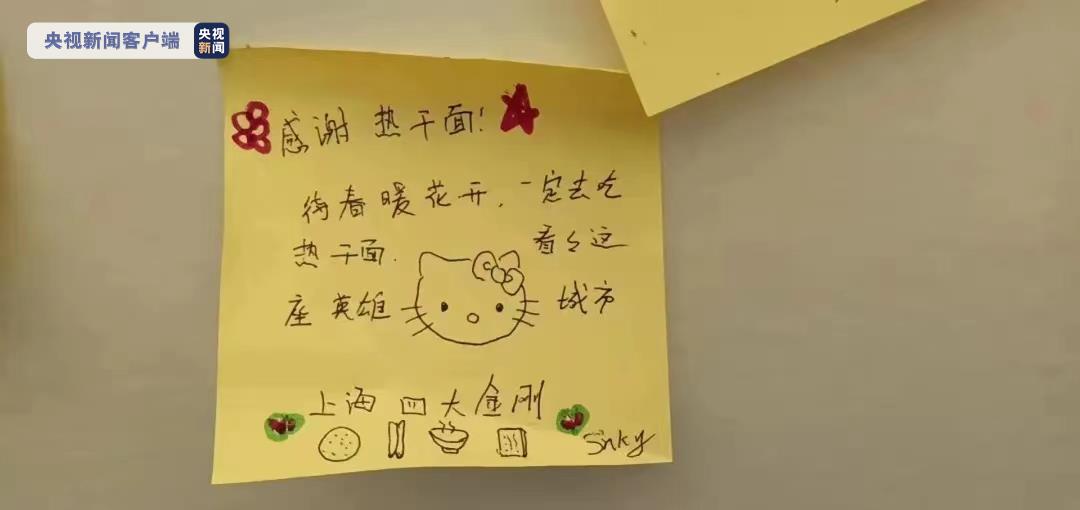 央视新闻客户端
央视
新闻
感谢 热干面!
待春暖花开,一定去吃
热干面. 看々这
座英雄 城市
上海 四大金刚
Sinky